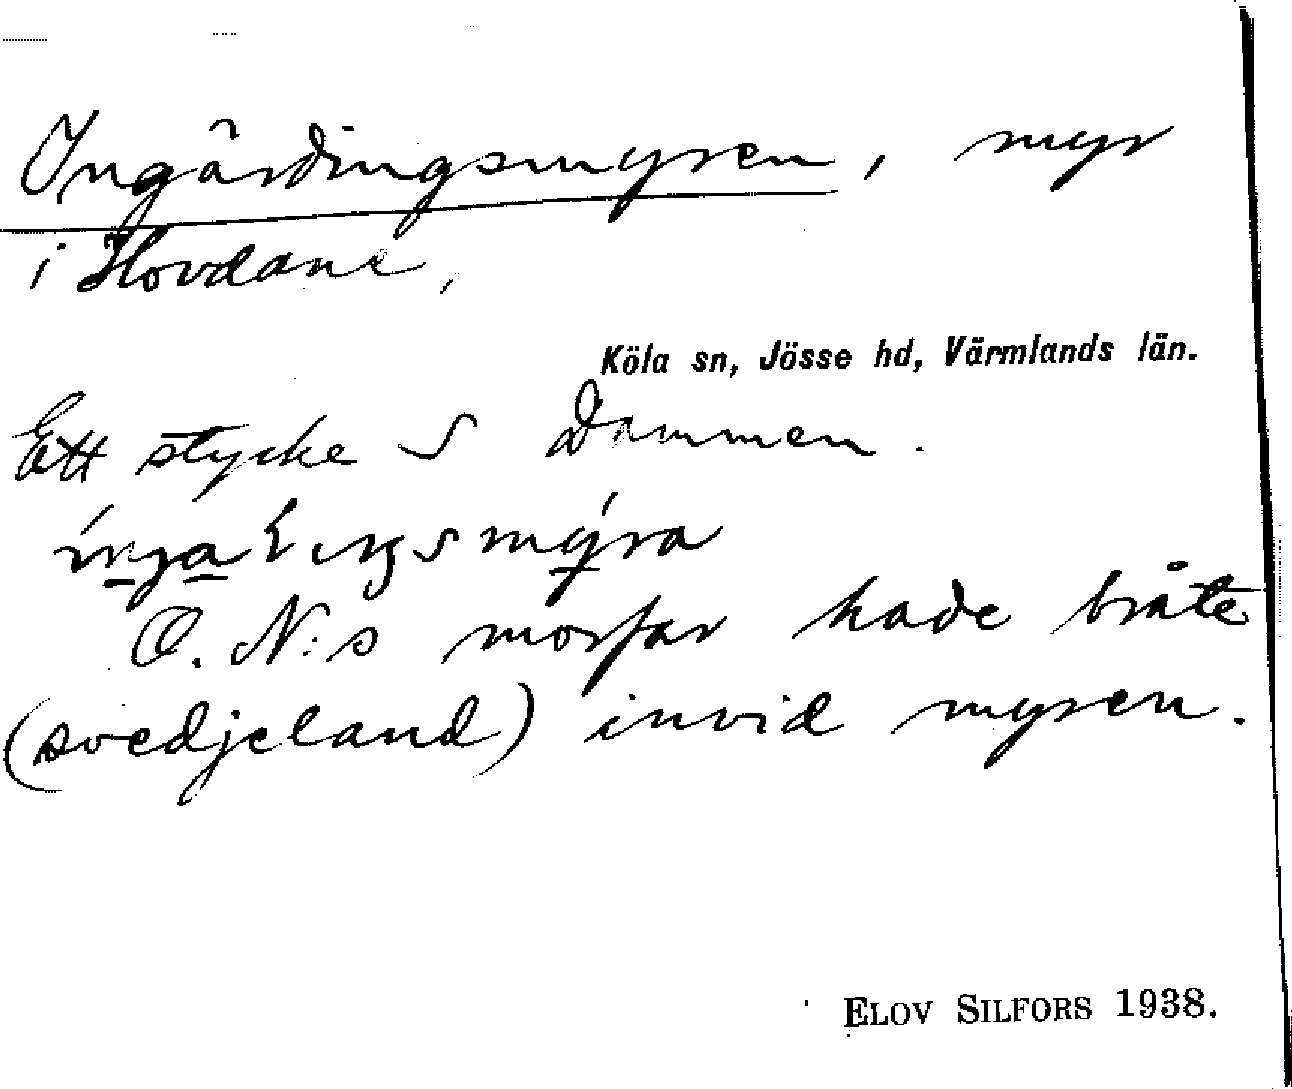 Ingårdingsmyren, myr
i Hovdane,
Köla sn, Jösse hd, Värmlands län.
Ett stycke S Dammen.
O. N:s morfar hade bråte
(svedjeland) invid myren.
ELOV SILFORS 1938.